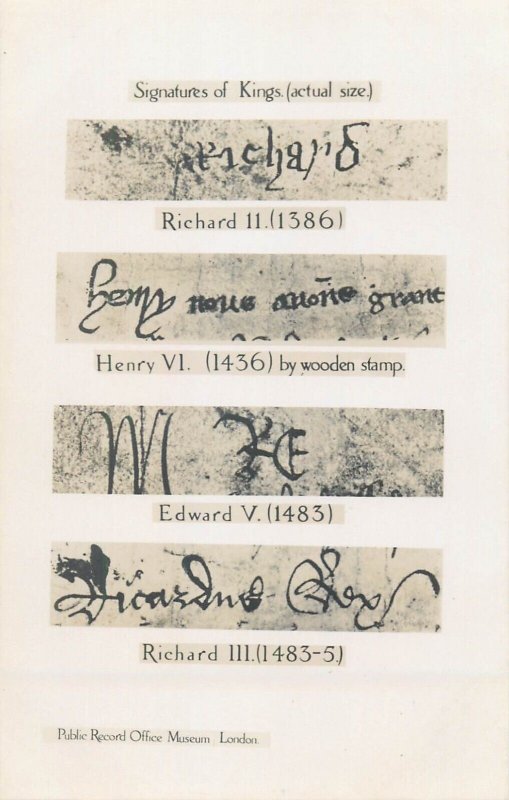 Signatures of Kings.(actual size.)
Richard
Richard II.(1386)
henry nous avons grant
Henry VI. (1436) by wooden stamp.
RE
Edward V.(1483)
Ricardus Rex
Richard III.(1483-5.)
Public Record Office Museum London.